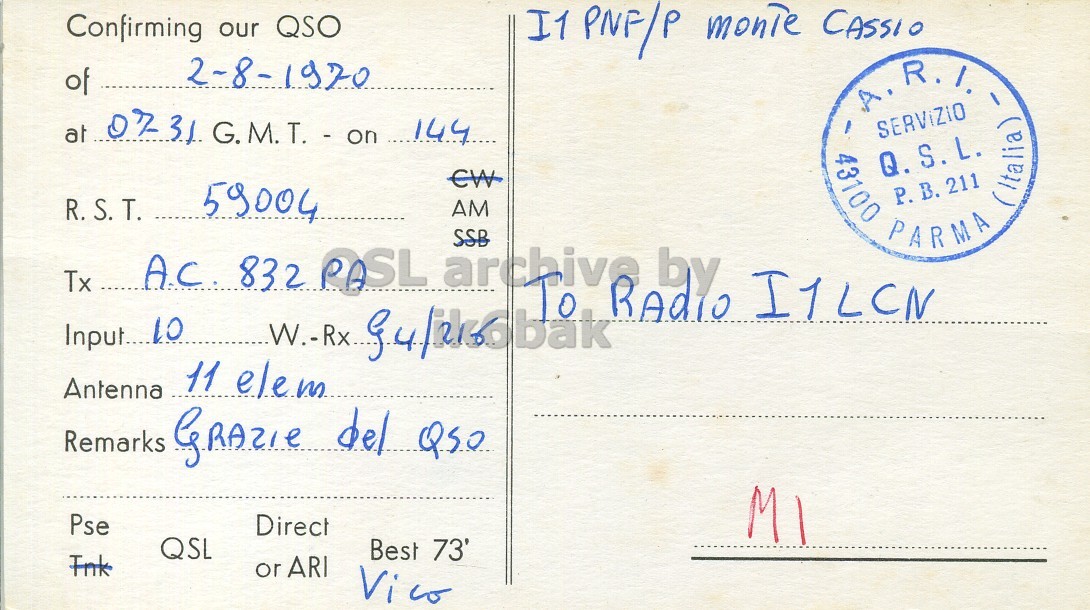 Confirming our QSO
of 2-8-1970
at 07-31 G.M.T. - on 144
CW
R.S.T. 59004 AM
SSB
Tx A.C. 832 PA
Input 10 W.-Rx G4/216
Antenna 11 elem
Remarks GRAZIE del QSO
Pse QSL Direct
Tnk or ARI Best 73'
Vico
I1 PNF/P monTe CASSIO
- A.R.I. -
SERVIZIO
Q.S.L.
P.B. 211
43100 PARMA (Italia)
To RAdio I1LCN
MI
QSL archive by
ik6bak